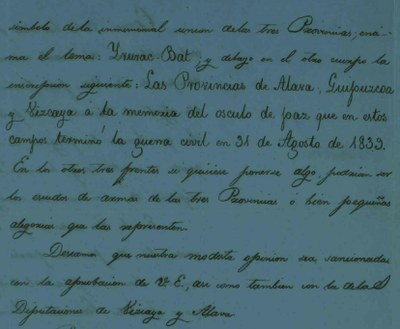 símbolo de la inmemorial union de las tres Provincias, 
ma el lema: Yrurac Bat, y debajo en el otro cuerpo la
inscripcion siguiente: Las Provincias de Alava, Guipuzcoa
y Vizcaya á la memoria del osculo de paz que en estos
campos terminó la guerra civil en 31 de Agosto de 1839.
En los otros tres frentes si quisiese ponerse algo, podrian ser
los escudos de armas de las tres Provincias ó bien pequeñas
alegorias que las representen.
Deseamos que nuestra modesta opinion sea sancionada
con la aprobacion de V. E., asi como tambien con la de las
Diputaciones de Vizcaya y Alava